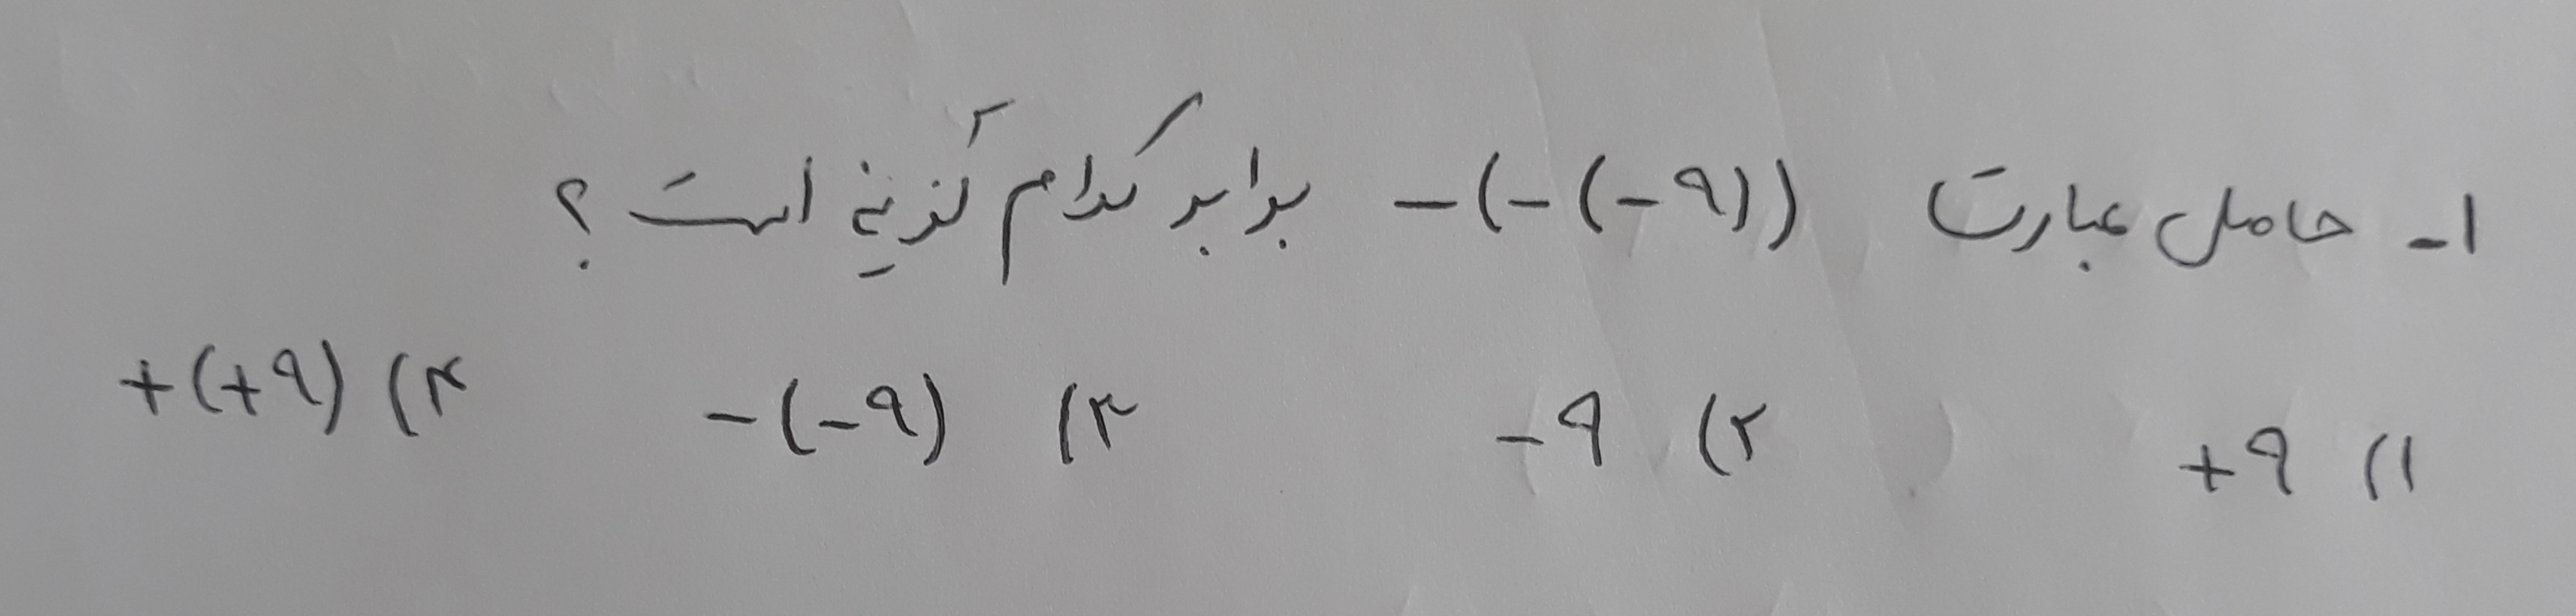 ۱- حاصل عبارت -(-(-۹)) برابر کدام گزینه است؟
۱) +۹ ۲) -۹ ۳) -(-۹) ۴) +(+۹)